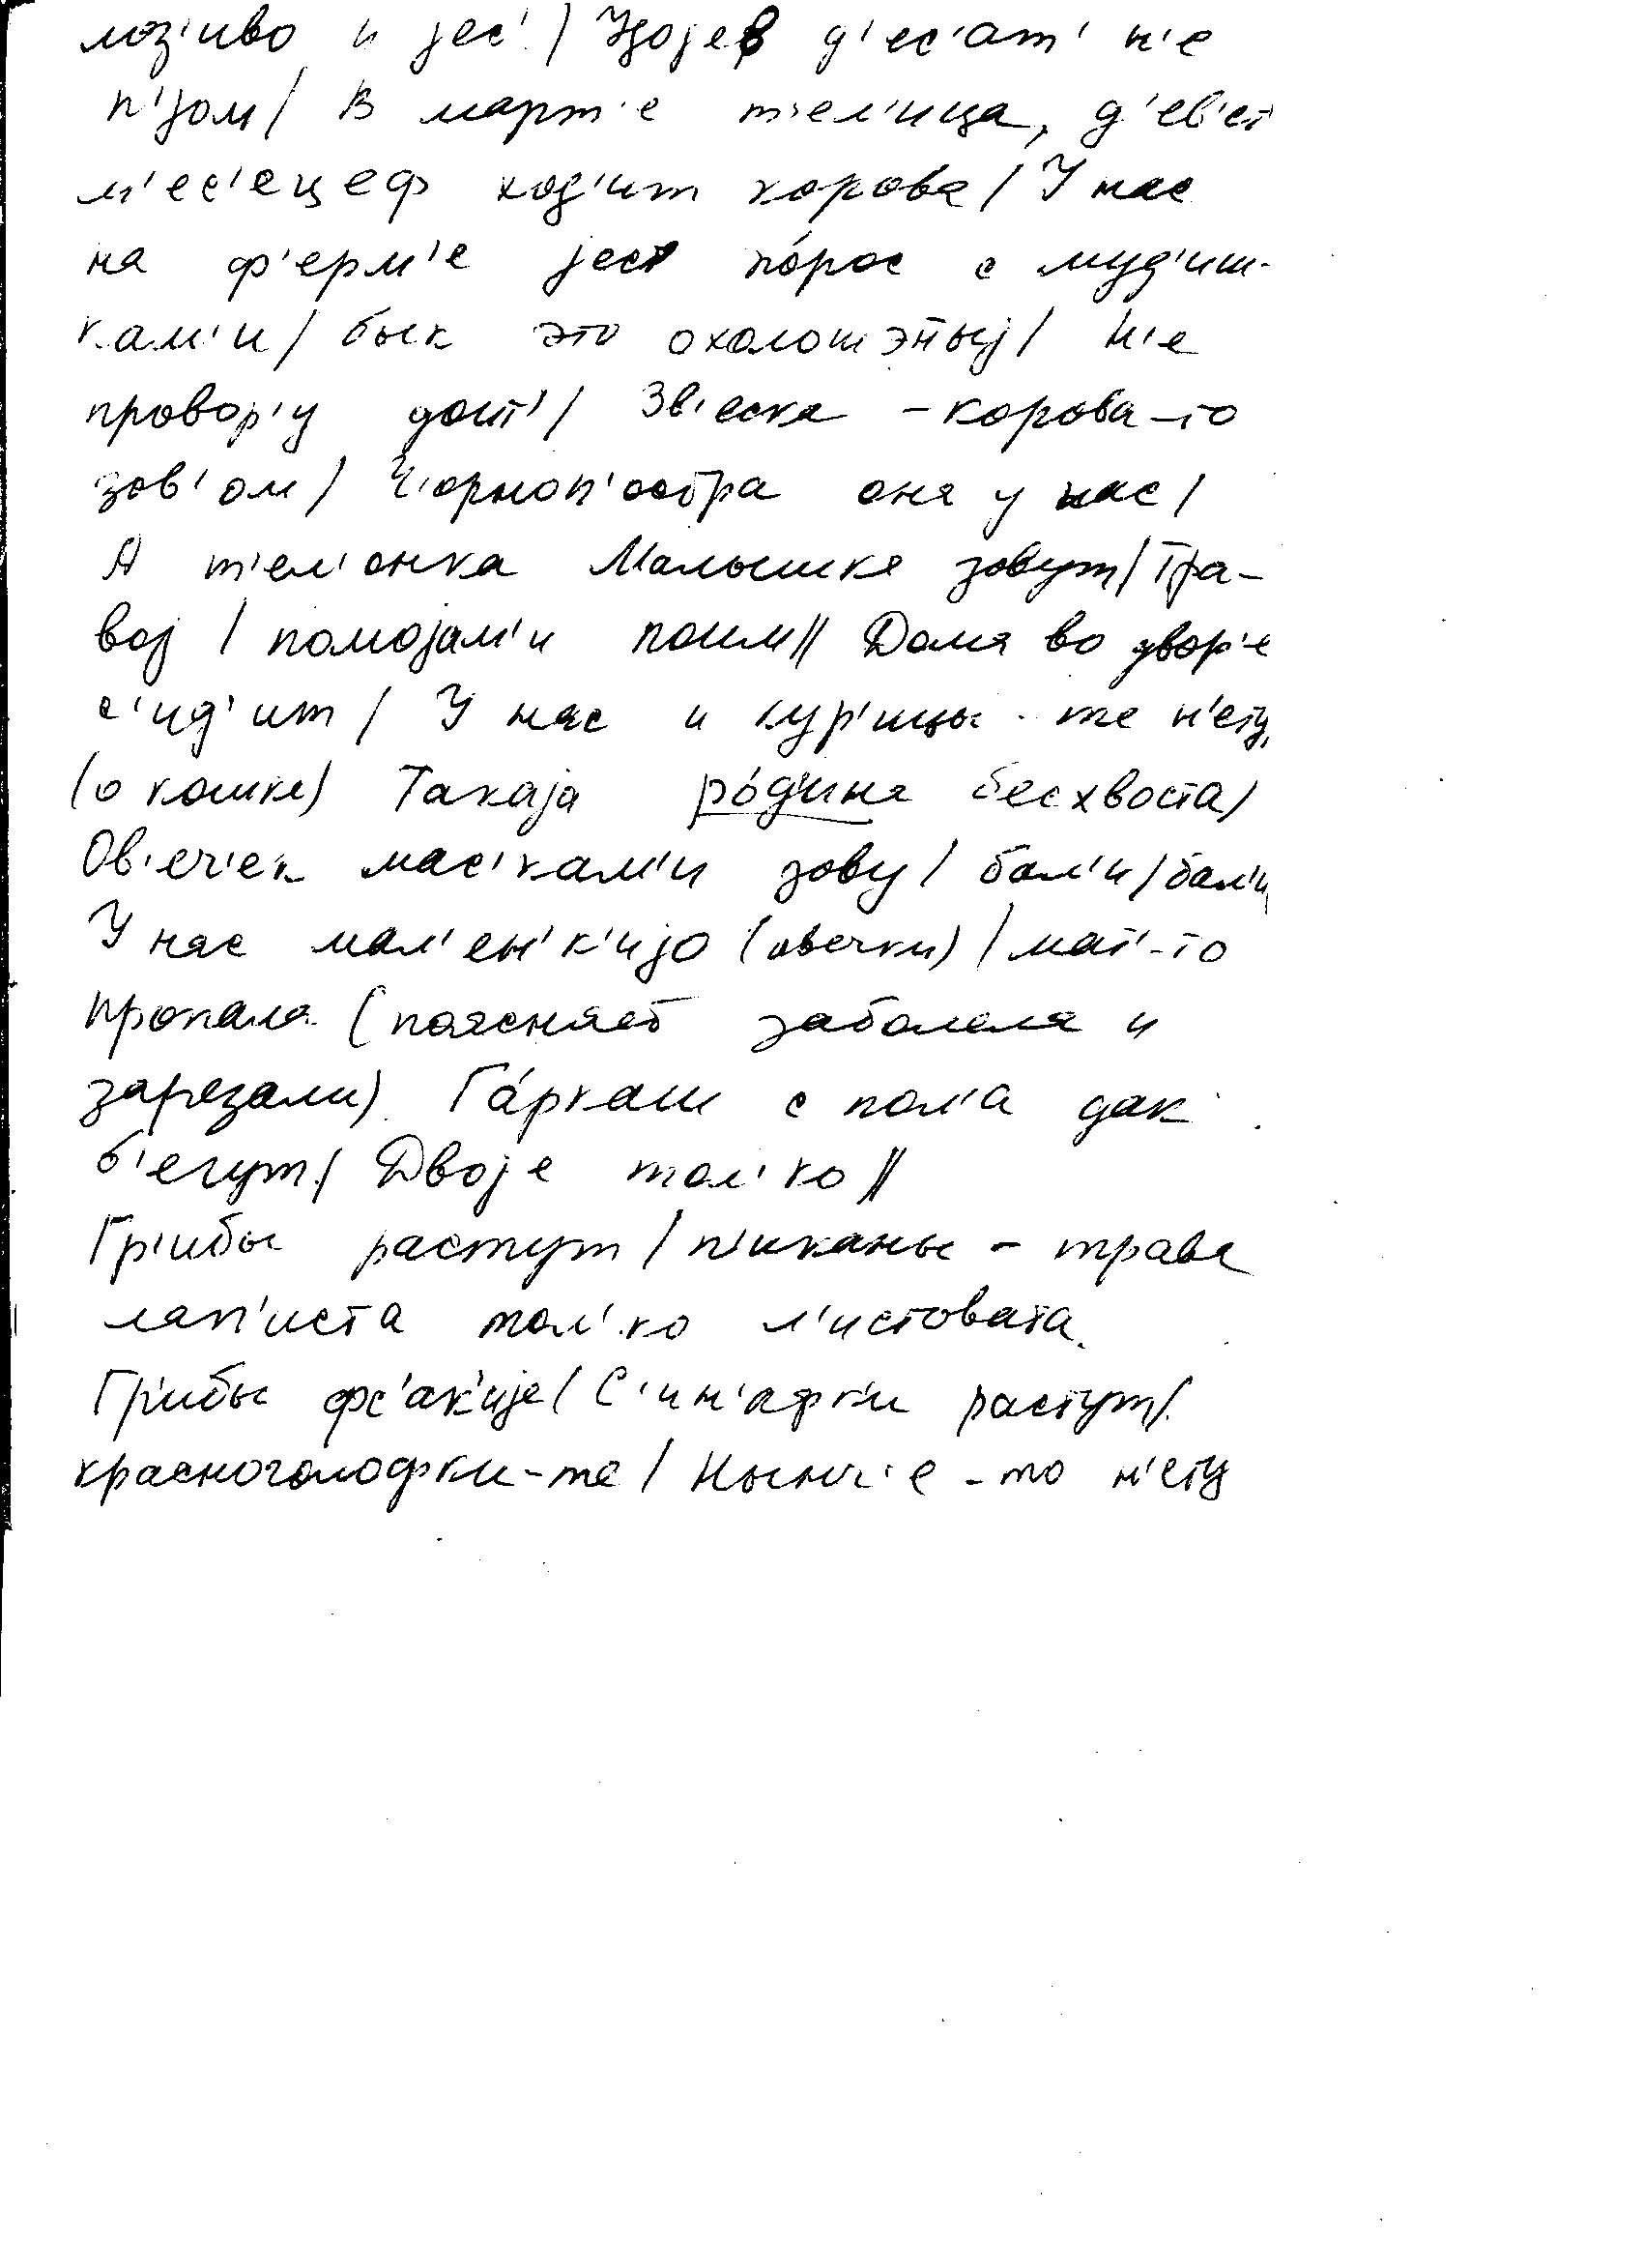 моз'иво и јес'./ Удојев д'ес'ат' н'е
п'јом/ В март'е т'ел'ица, д'ев'ет
м'ес'ецеф ход'ит корова/ У нас
на ф'ерм'е јест по́рос с муд'иш-
кам'и/ бык это охолошэный/ Н'е
провор'у доит'/ Зв'еска - корова-то
зов'ом/ Ч'орноп'остра она у нас/
А т'ел'онка Малышка зовут/ Тра-
вој / помојам'и поим// Дома во двор'е
с'ид'ит/ У нас и кур'ицы-те н'ету,
(о кошке) Такаја ро́д'ина бесхвоста/
Ов'еч'ек мас'кам'и зову/ бал'и/ бал'и/
У нас мал'ен'к'ијо (овечки) / мат'-то
пропала (поясняет заболела и
зарезали). Га́ркаш с пол'а дак
б'егут/ Двоје тол'ко//
Гр'ибы растут/ п'иканы - трава
лап'иста тол'ко л'истовата.
Гр'ибы фс'ак'ије/ С'ин'афк'и растут/
красноголофки-те/ Нынч'е-то н'ету